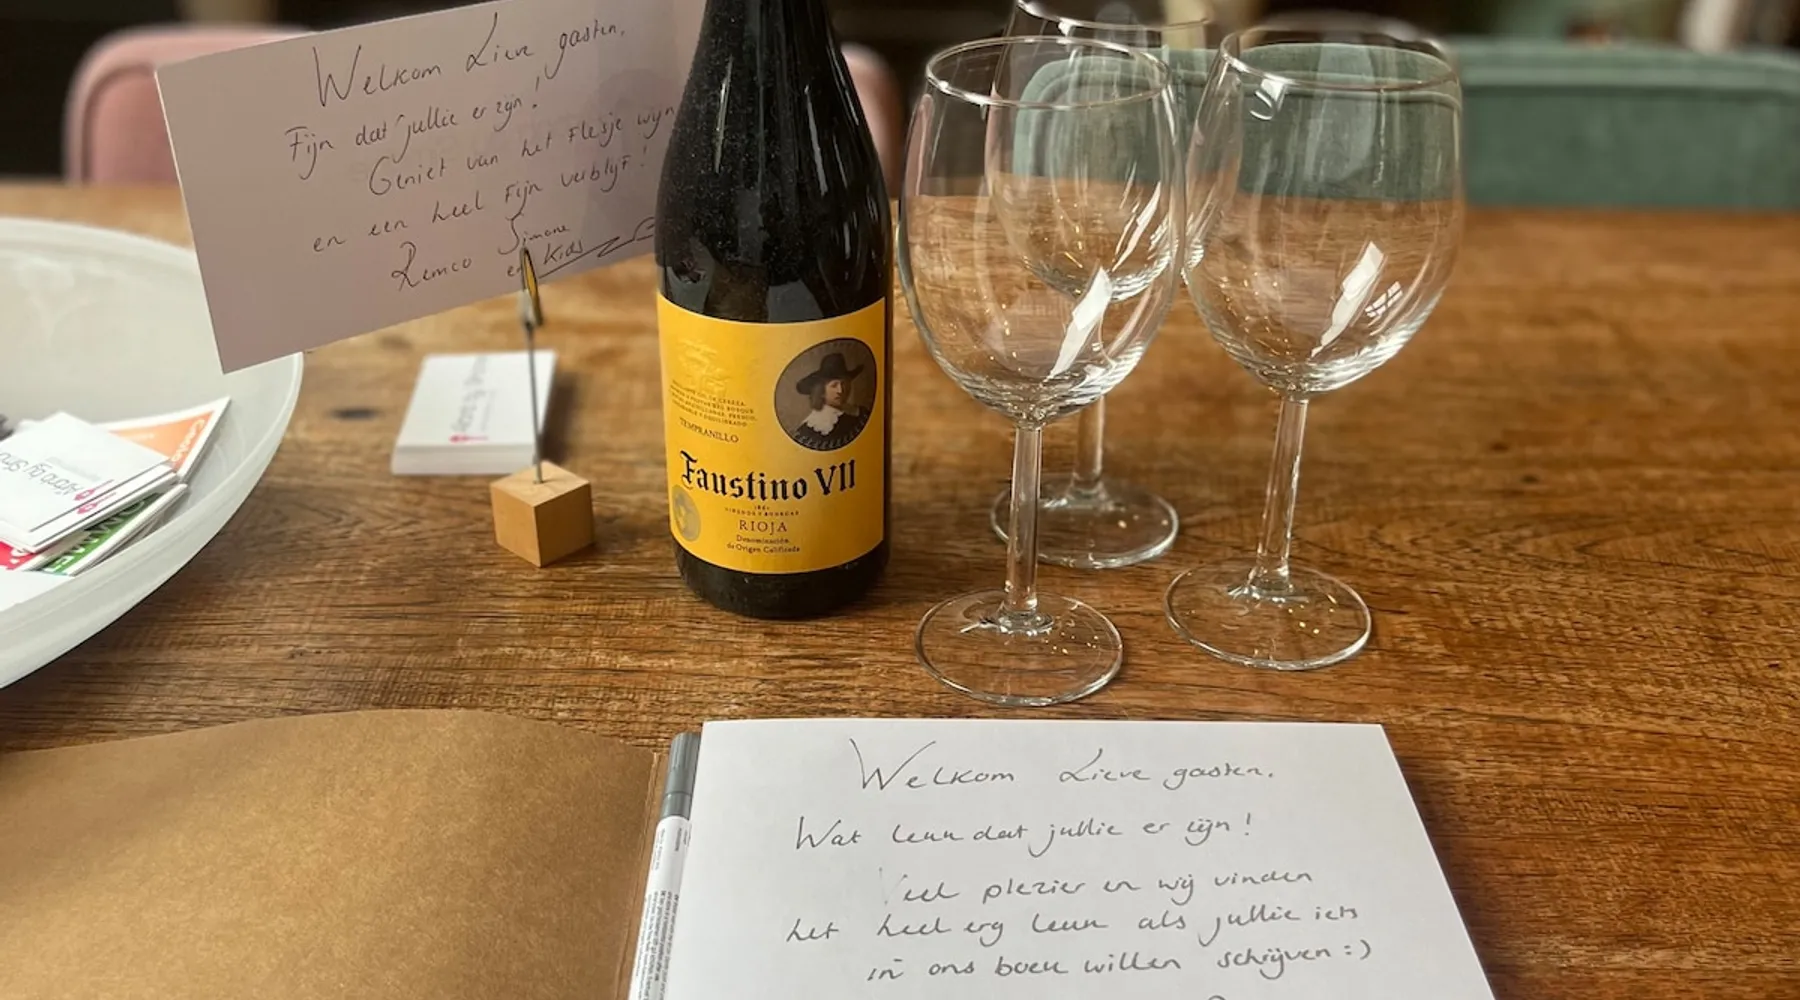 Welkom Lieve gasten,
Fijn dat jullie er zijn!
Geniet van het Flesje wijn
en een heel Fijn verblijf!
Remco Simone
en Kids
TEMPRANILLO
Faustino VII
1861
VIÑEDOS Y BODEGAS
RIOJA
Denominación
de Origen Calificada
Welkom Lieve gasten,
Wat leuk dat jullie er zijn!
Veel plezier en wij vinden
het heel erg leuk als jullie iets
in ons boek willen schrijven :)